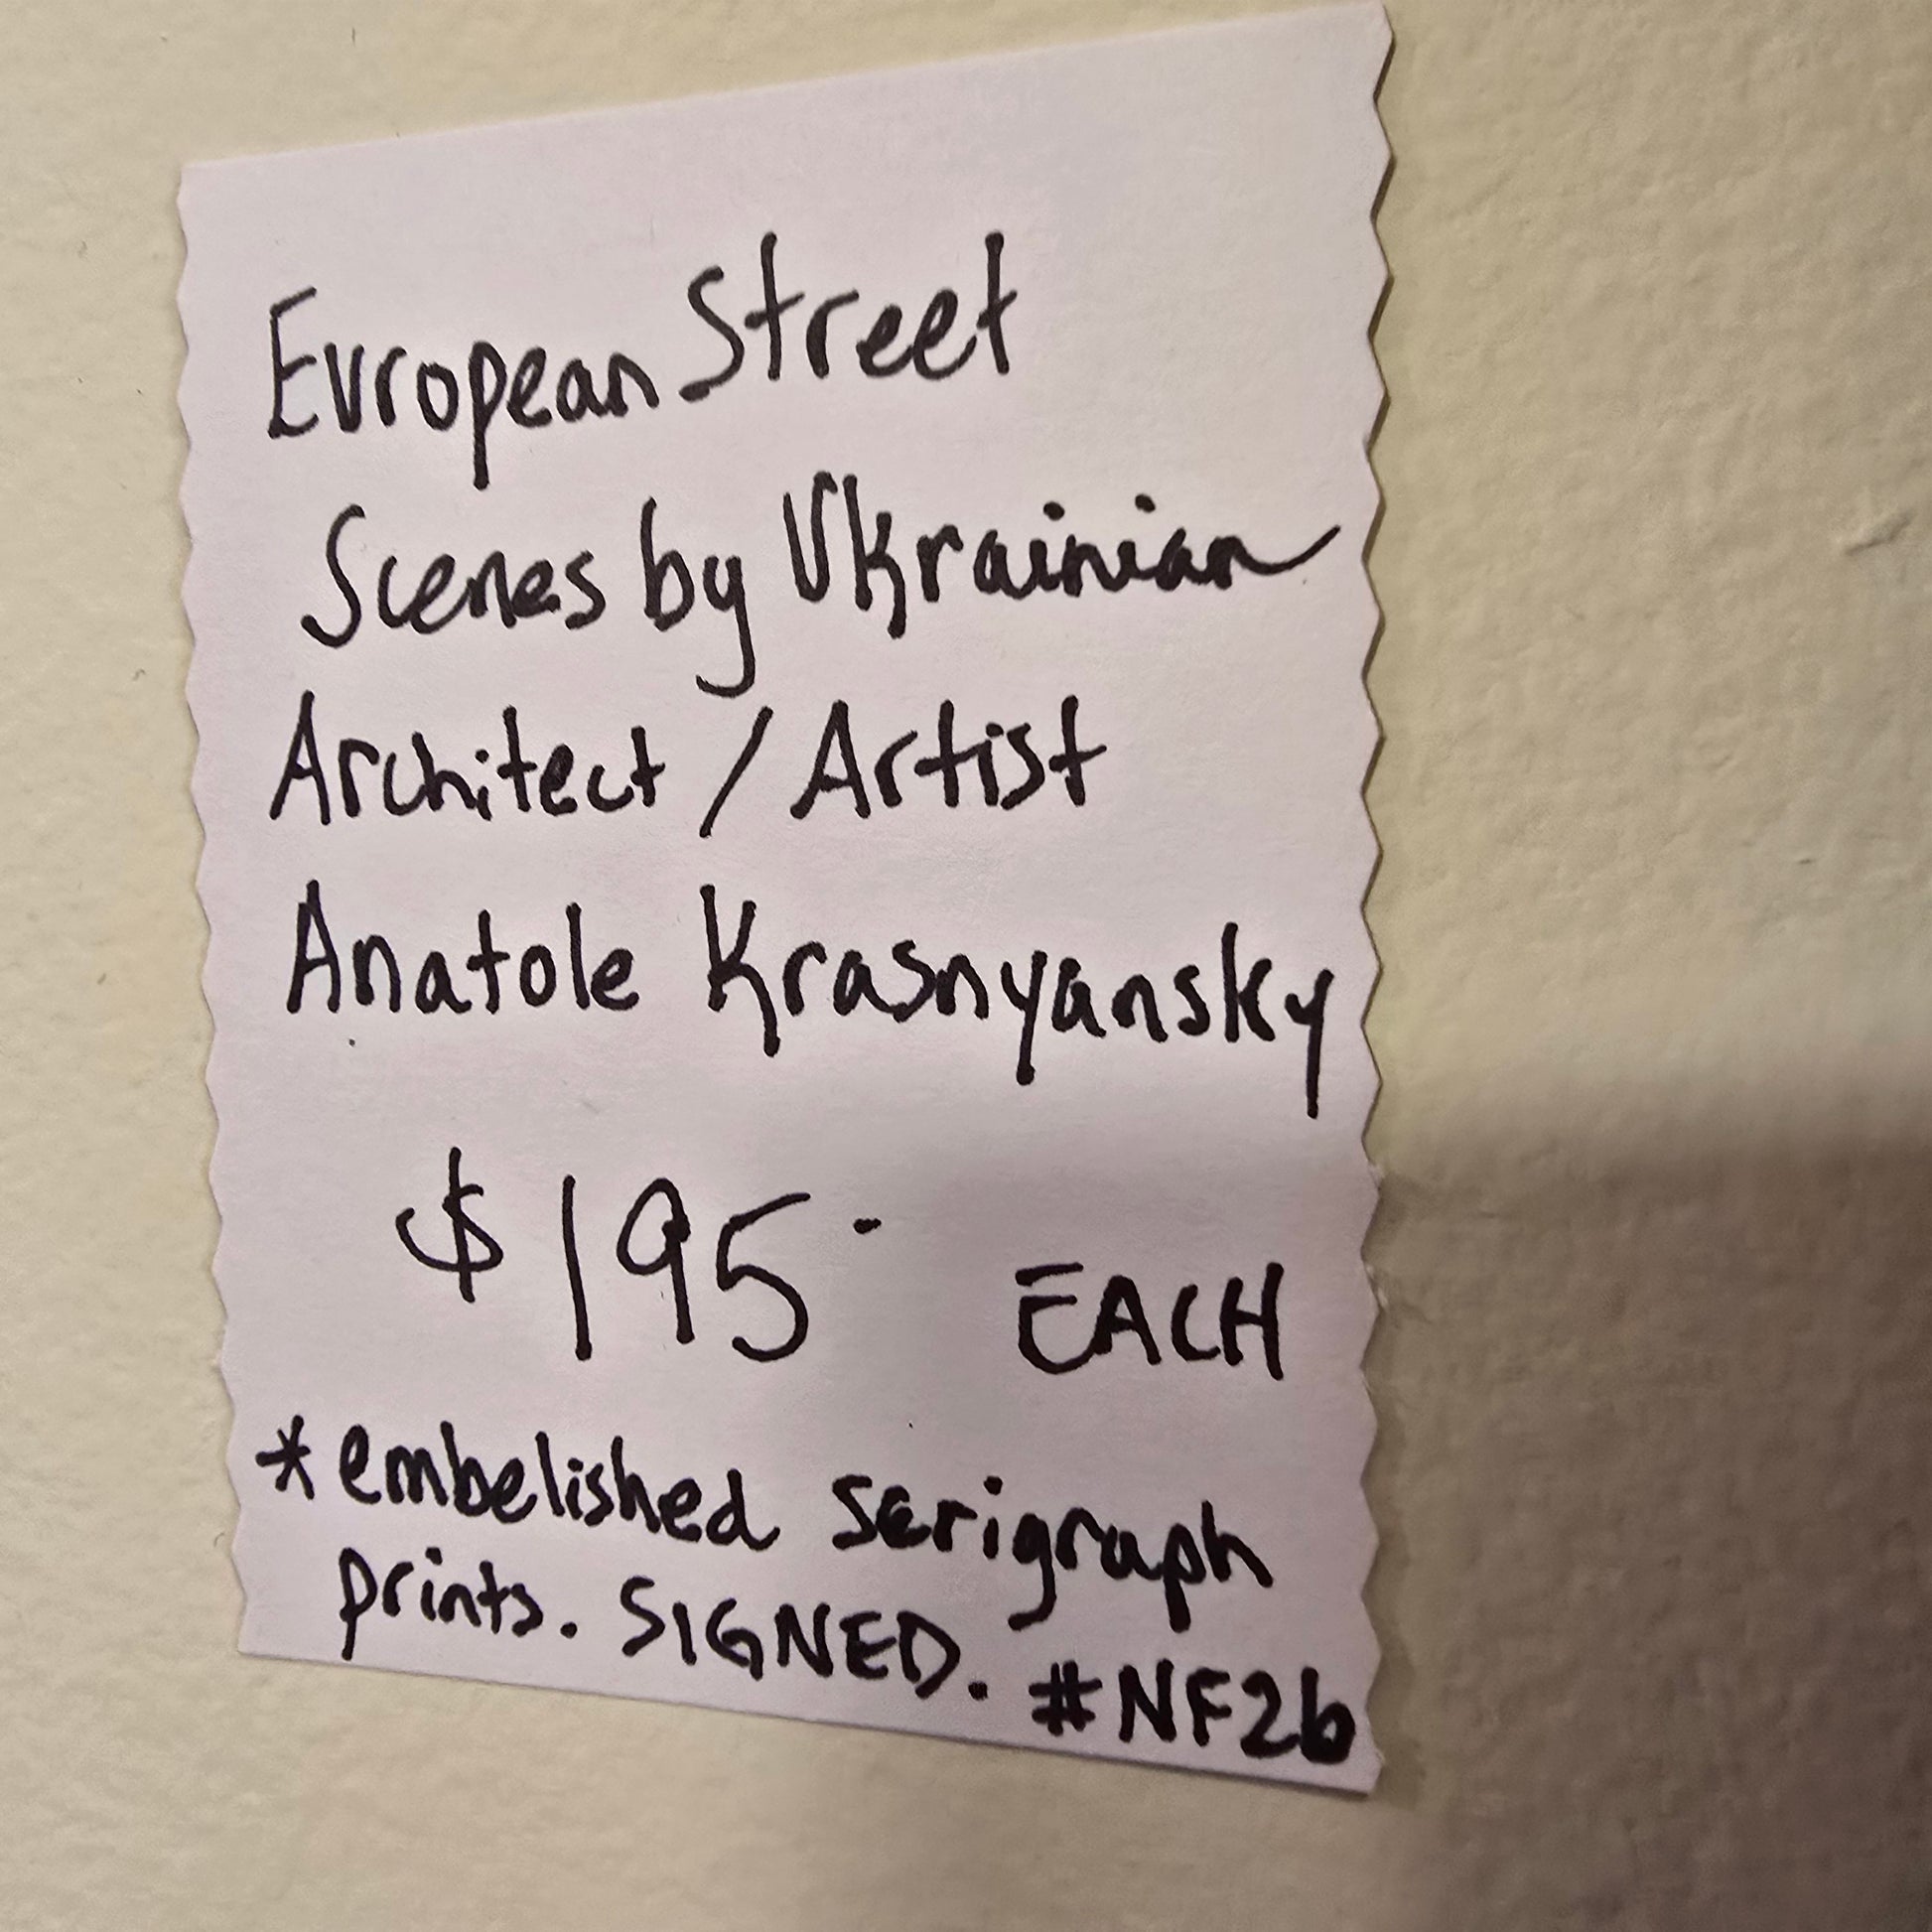 European Street
Scenes by Ukrainian
Architect / Artist
Anatole Krasnyansky
$195- EACH
*embelished serigraph
prints. SIGNED. #NF2b